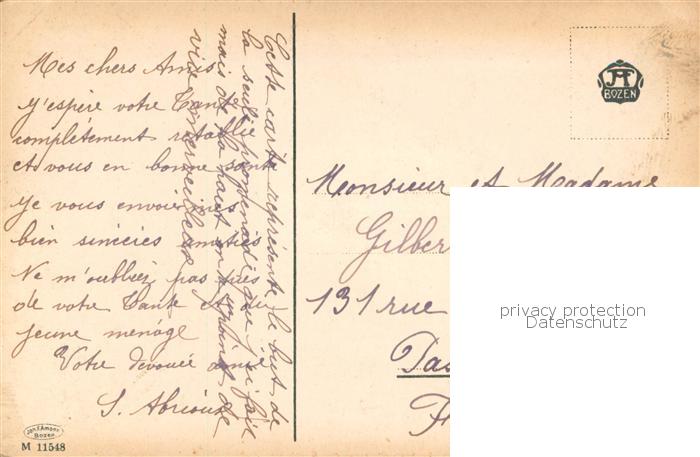 Mes chers Amis
J'espère votre Tante
complètement rétablie
et vous en bonne santé
Je vous envoie mes
bien sincères amitiés
Ne m'oubliez pas près
de votre Tante et du
jeune ménage
Votre dévouée amie
S.
Cette carte représente le but de
la seule promenade que j'ai fait
mais de là haut on jouit de
vue merveilleux
JF
BOZEN
Monsieur et Madame
Gilber
131 rue
Pa
F
privacy protection
Datenschutz
Joh. F. Amonn
Bozen
M 11548